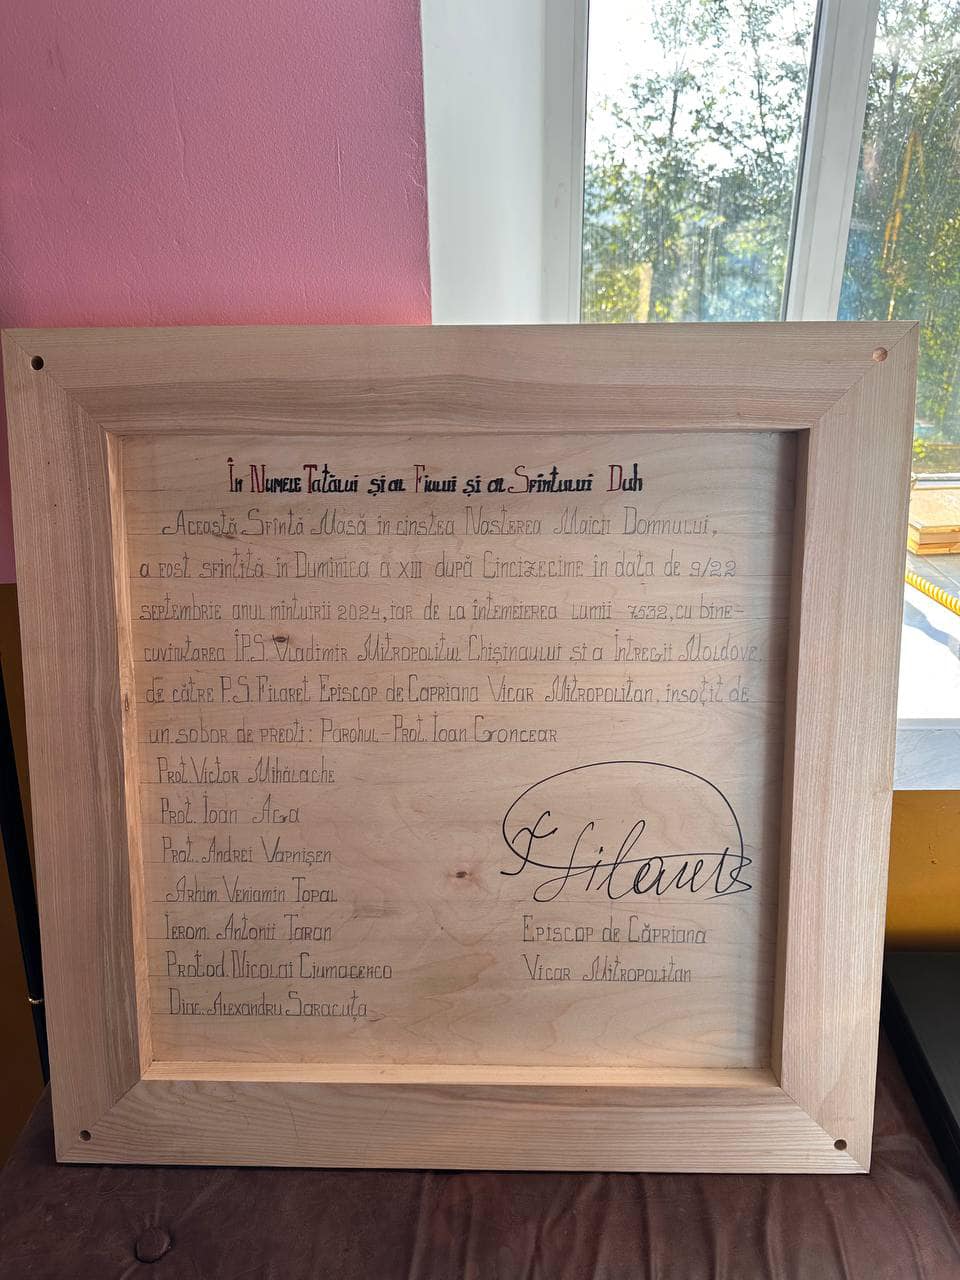 În Numele Tatălui și al Fiului și al Sfîntului Duh
Această Sfîntă Masă în cinstea Nasterea Maicii Domnului,
a fost sfintită în Duminica a XIII după Cincizecime în data de 9/22
septembrie anul mîntuirii 2024, iar de la întemeierea lumii 7532, cu bine-
cuvintarea ÎP.S. Vladimir Mitropolitul Chișinaului si a Întregii Moldove,
de către P.S. Filaret Episcop de Capriana Vicar Mitropolitan, însoțit de
un sobor de preoti: Parohul - Prot. Ioan Goncear
Prot. Victor Mihălache
Prot. Ioan Aga
Prot. Andrei Vapnișen
Arhim. Veniamin Topal
Ierom. Antonii Taran
Protod. Nicolai Ciumacenco
Diac. Alexandru Saracuța
Filaret
Episcop de Căpriana
Vicar Mitropolitan